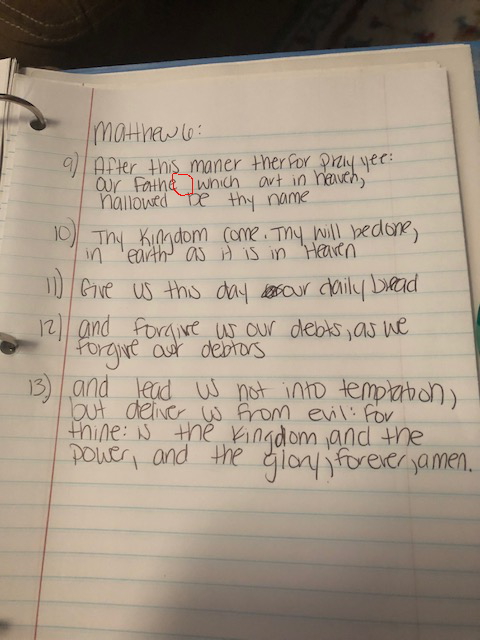 Matthew 6:
9) After this maner therfor pray yee:
our Fathe which art in heaven,
hallowed be thy name
10) Thy Kingdom come. Thy will be done,
in earth as it is in Heaven
11) Give us this day our daily bread
12) and forgive us our debts, as we
forgive our debtors
13) and lead us not into temptation,
but deliver us from evil: for
thine: is the kingdom, and the
power, and the glory, forever, amen.